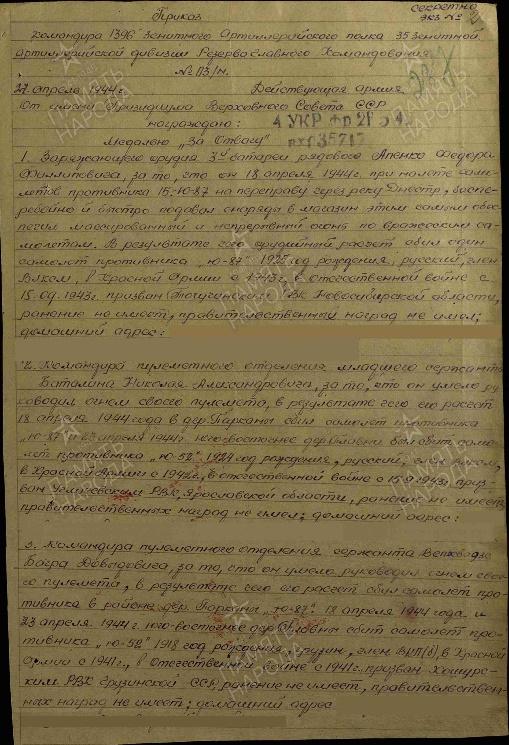 Секретно
экз №2
Приказ
командира 1396 Зенитного Артиллерийского полка 35 Зенитной
Артиллерийской дивизии Резерва Главного Командования
№ 113/н.
27 апреля 1944 г. Действующая армия
От имени Президиума Верховного Совета ССР
награждаю:
4 УКР Фр
Медалью „За Отвагу"
1. Заряжающего орудия 3й батареи рядового Апенко Федора
Филлиповича, за то, что он 18 апреля 1944г. при налете само-
летов противника 15-Ю-87 на переправу через реку Днестр, беспе-
ребойно и быстро подавал снаряды в магазин этим самым обес-
печил массированный и непрерывный огонь по вражеским са-
молетам. В результате чего орудийный расчет сбил один
самолет противника „ю-87" 1925 год рождения, русский, член
Влксм, в Красной Армии с 1943г., в отечественной войне с
15.09.1943г. призван РВК Новосибирской области,
ранение не имеет, правительственный наград не имел;
домашний адрес:
2. Командира пулеметного отделения младшего сержанта
Баталина Николая Александровича, за то, что он умело ру-
ководил огнем своего пулемета, в результате чего его расчет
18 апреля 1944 года в дер. Парканы сбил самолет противника
„ю-87" и 23 апреля 1944г. юго-восточнее дер. был сбит само-
лет противника „ю-52" 1924 год рождения, русский, член влксм,
в Красной Армии с 1942г., в отечественной войне с 15.9.1943г. приз-
ван РВК, Ярославской области, ранение не имеет
правительственных наград не имел; домашний адрес:
3. Командира пулеметного отделения сержанта
Багра Давыдовича, за то, что он умело руководил огнем свое-
го пулемета, в результате чего его расчет сбил самолет про-
тивника в районе дер. Парканы „ю-87" 18 апреля 1944 года и
23 апреля 1944 г. юго-восточнее дер. сбит самолет про-
тивника „ю-52" 1918 год рождения, грузин, член ВКП(б) в Красной
Армии с 1941г., в Отечественной войне с 1941г. призван Хашурс-
ким РВК Грузинской ССР, ранение не имеет, правительствен-
ных наград не имеет; домашний адрес
ПАМЯТЬ
НАРОДА